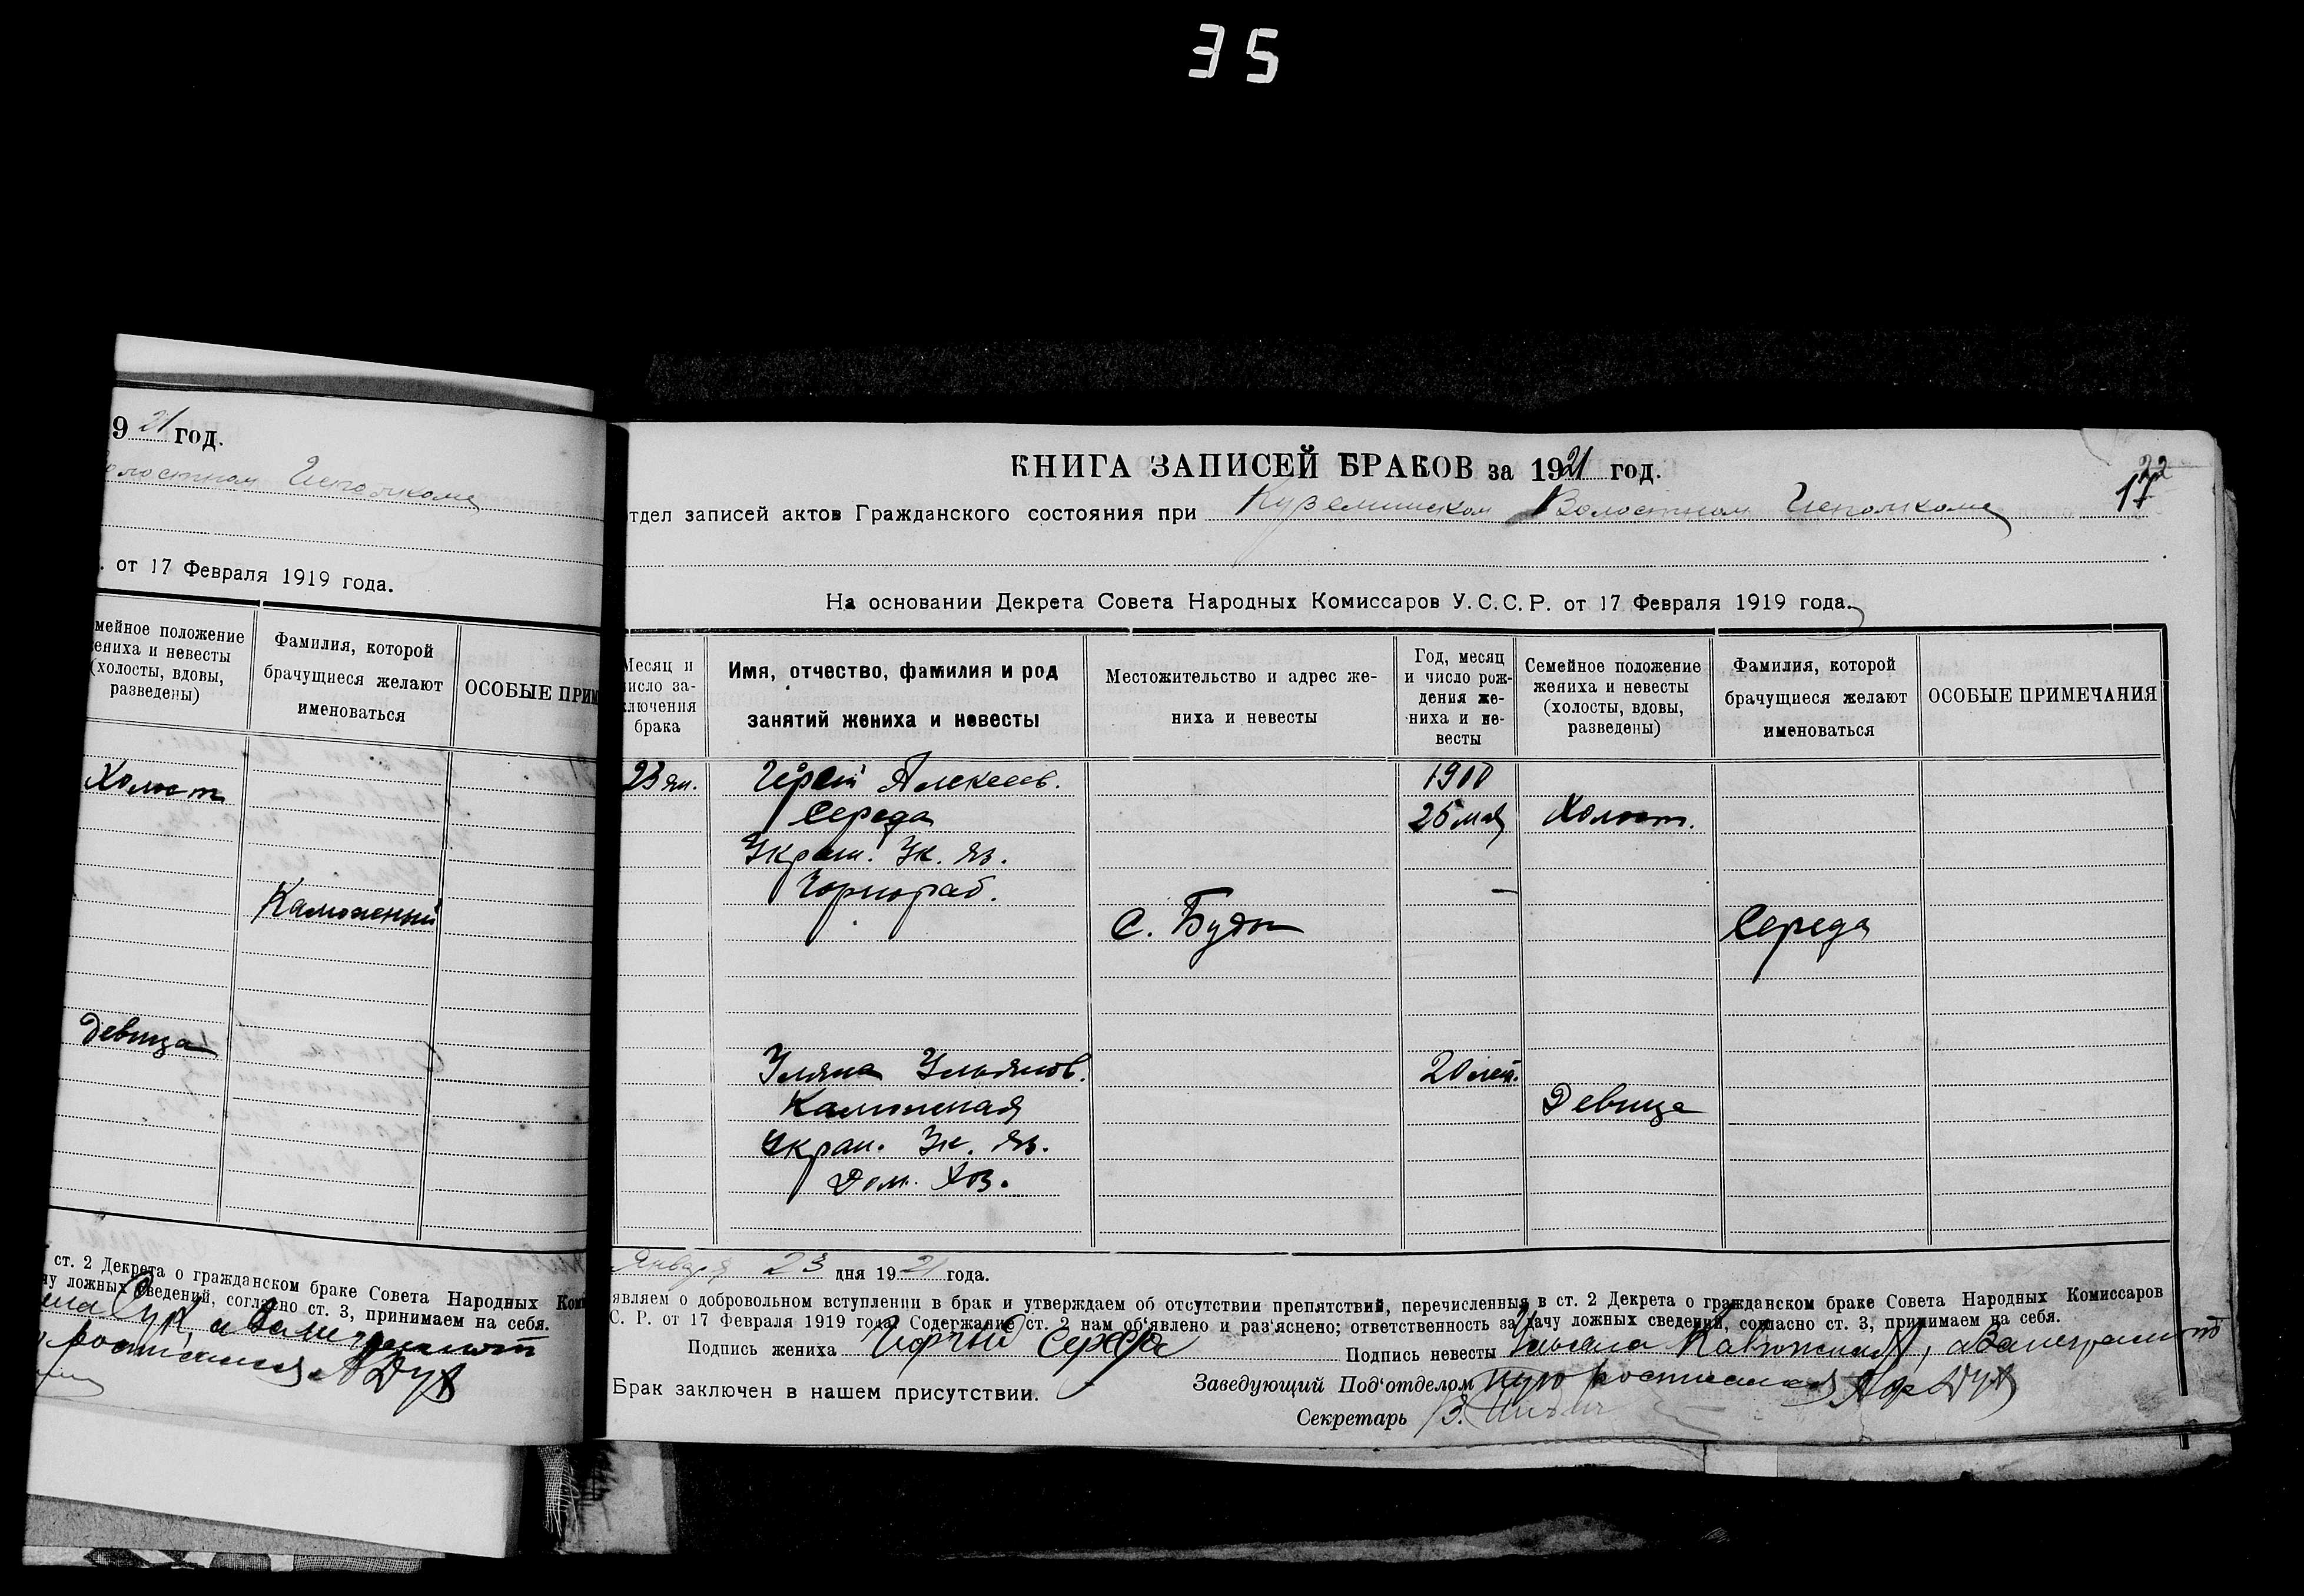 35
9 21 год.
Волостном Исполкоме
. от 17 Февраля 1919 года.
мейное положение
ениха и невесты
(холосты, вдовы,
разведены)
Фамилия, которой
брачущиеся желают
именоваться
ОСОБЫЕ ПРИМ
Холост
Каможный
Девица
ст. 2 Декрета о гражданском браке Совета Народных Ком
чу ложных сведений, согласно ст. 3, принимаем на себя.
КНИГА ЗАПИСЕЙ БРАКОВ за 1921 год.
22
17
тдел записей актов Гражданского состояния при Куземинском Волостном Исполкоме
На основании Декрета Совета Народных Комиссаров У.С.С.Р. от 17 Февраля 1919 года.
Месяц и
число за-
ключения
брака
Имя, отчество, фамилия и род
занятий жениха и невесты
Местожительство и адрес же-
ниха и невесты
Год, месяц
и число рож-
дения же-
ниха и не-
весты
Семейное положение
жениха и невесты
(холосты, вдовы,
разведены)
Фамилия, которой
брачущиеся желают
именоваться
ОСОБЫЕ ПРИМЕЧАНИЯ
23 ян. Алексеев. 1900
Середа 25 мая Холост.
Украин. Ук. яз.
Чорнораб.
С. Буды Середа
Уляна Ульянов. 20 лет.
Каможная Девица
Украи. Ук. яз.
Дом. Хоз.
Января 23 дня 1921 года.
являем о добровольном вступлении в брак и утверждаем об отсутствии препятствий, перечисленных в ст. 2 Декрета о гражданском браке Совета Народных Комиссаров
С. Р. от 17 Февраля 1919 года. Содержание ст. 2 нам об'явлено и раз'яснено; ответственность за дачу ложных сведений, согласно ст. 3, принимаем на себя.
Подпись жениха Середа Подпись невесты Ульяна Каможная, а За неграмотн
Брак заключен в нашем присутствии. Заведующий Под'отделом
Секретарь